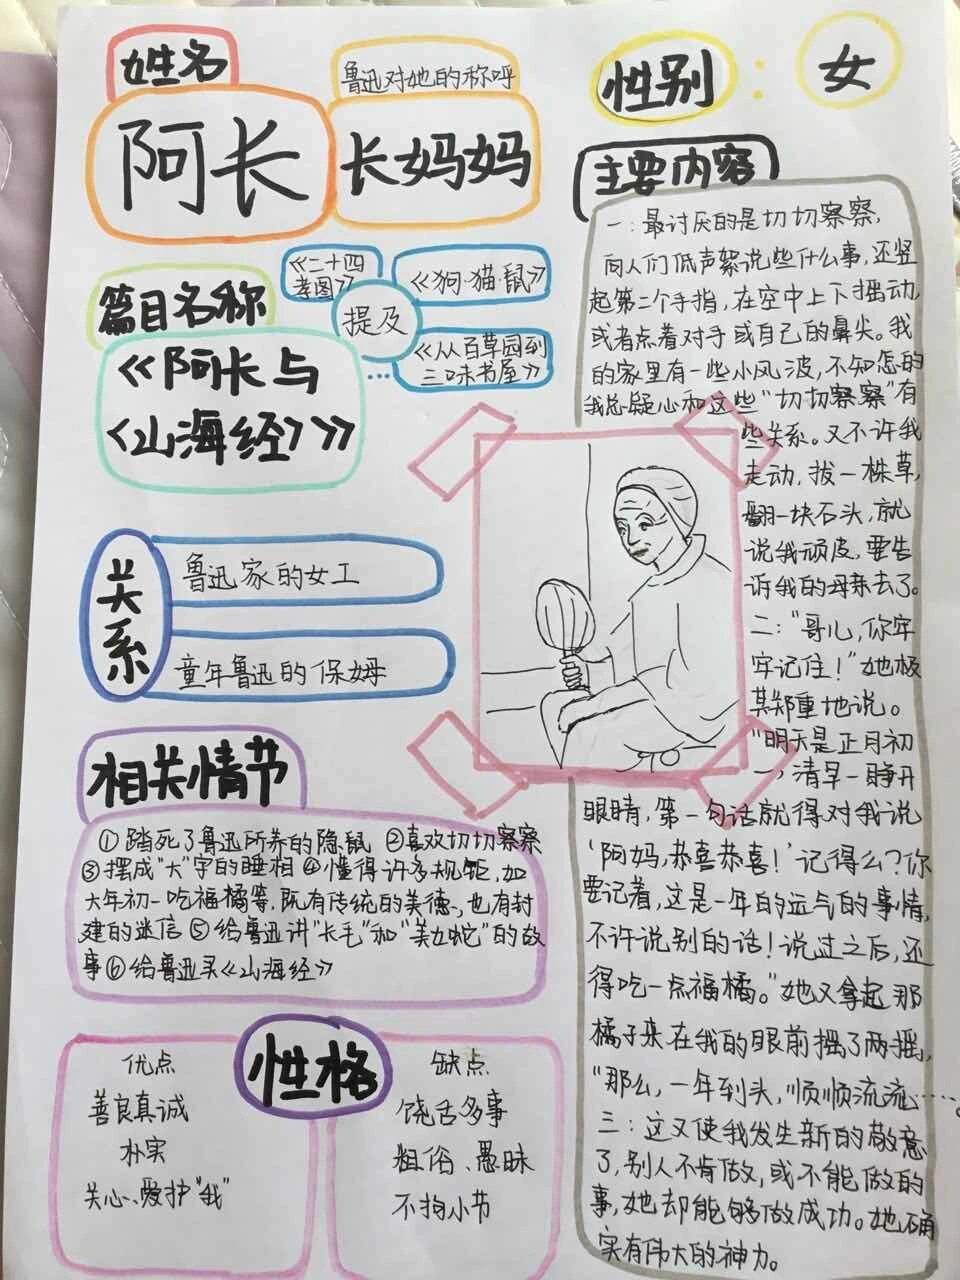 姓名
阿长
鲁迅对她的称呼
长妈妈
性别：女
篇目名称
《阿长与
《山海经》》
提及
《二十四
孝图》
《狗·猫·鼠》
《从百草园到
三味书屋》
…
关系
鲁迅家的女工
童年鲁迅的保姆
相关情节
①踏死了鲁迅所养的隐鼠 ②喜欢切切察察
③摆成“大”字的睡相 ④懂得许多规矩,如
大年初一吃福橘等,既有传统的美德,也有封
建的迷信 ⑤给鲁迅讲“长毛”和“美女蛇”的故
事⑥给鲁迅买《山海经》
性格
优点
善良真诚
朴实
关心、爱护“我”
缺点
饶舌多事
粗俗、愚昧
不拘小节
主要内容
一：最讨厌的是切切察察,
向人们低声絮说些什么事,还竖
起第二个手指,在空中上下摇动,
或者点着对手或自己的鼻尖。我
的家里有一些小风波,不知怎的
我总疑心和这些“切切察察”有
些关系。又不许我
走动,拔一株草,
翻一块石头,就
说我顽皮,要告
诉我的母亲去了。
二：“哥儿,你牢
牢记住！”她极
其郑重地说。
“明天是正月初
一,清早一睁开
眼睛,第一句话就得对我说
‘阿妈,恭喜恭喜！’记得么？你
要记着,这是一年的运气的事情,
不许说别的话！说过之后,还
得吃一点福橘。”她又拿起那
橘子来在我的眼前摇了两摇,
“那么,一年到头,顺顺流流……。
三：这又使我发生新的敬意
了,别人不肯做,或不能做的
事,她却能够做成功。她确
实有伟大的神力。